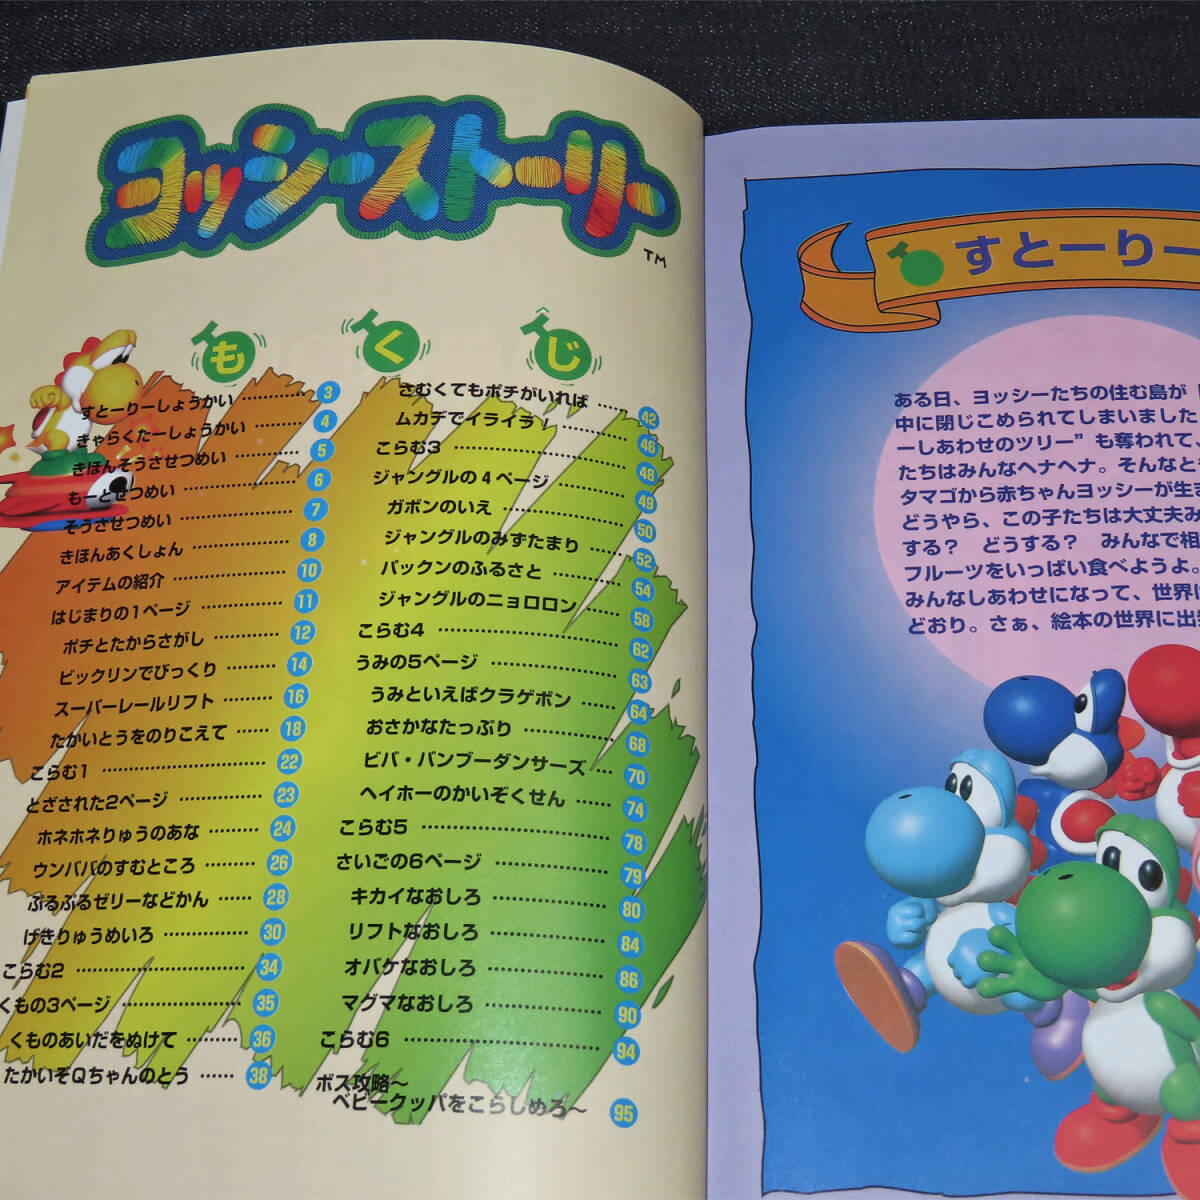 ヨッシーストーリー
TM
もくじ
すとーりーしょうかい ………… 3
きゃらくたーしょうかい ………… 4
きほんそうさせつめい ………… 5
もーどせつめい ………… 6
そうさせつめい ………… 7
きほんあくしょん ………… 8
アイテムの紹介 ………… 10
はじまりの1ページ ………… 11
ポチとたからさがし ………… 12
ビックリンでびっくり ………… 14
スーパーレールリフト ………… 16
たかいとうをのりこえて …… 18
こらむ1 ………… 22
とざされた2ページ ………… 23
ホネホネりゅうのあな ……… 24
ウンババのすむところ ……… 26
ぷるぷるゼリーなどかん …… 28
げきりゅうめいろ ………… 30
こらむ2 ………… 34
くもの3ページ ………… 35
くものあいだをぬけて ……… 36
たかいぞQちゃんのとう …… 38
さむくてもポチがいれば …… 42
ムカデでイライラ! ………… 46
こらむ3 ………… 48
ジャングルの4ページ ………… 49
ガボンのいえ ………… 50
ジャングルのみずたまり …… 52
パックンのふるさと ………… 54
ジャングルのニョロロン …… 58
こらむ4 ………… 62
うみの5ページ ………… 63
うみといえばクラゲボン …… 64
おさかなたっぷり ………… 68
ビバ・バンブーダンサーズ … 70
ヘイホーのかいぞくせん …… 74
こらむ5 ………… 78
さいごの6ページ ………… 79
キカイなおしろ ………… 80
リフトなおしろ ………… 84
オバケなおしろ ………… 86
マグマなおしろ ………… 90
こらむ6 ………… 94
ボス攻略〜
ベビークッパをこらしめろ〜 95
すとーりー
ある日、ヨッシーたちの住む島が
中に閉じこめられてしまいました
ーしあわせのツリー”も奪われて、
たちはみんなヘナヘナ。そんなとき
タマゴから赤ちゃんヨッシーが生ま
どうやら、この子たちは大丈夫み
する? どうする? みんなで相
フルーツをいっぱい食べようよ。
みんなしあわせになって、世界は
どおり。さぁ、絵本の世界に出発